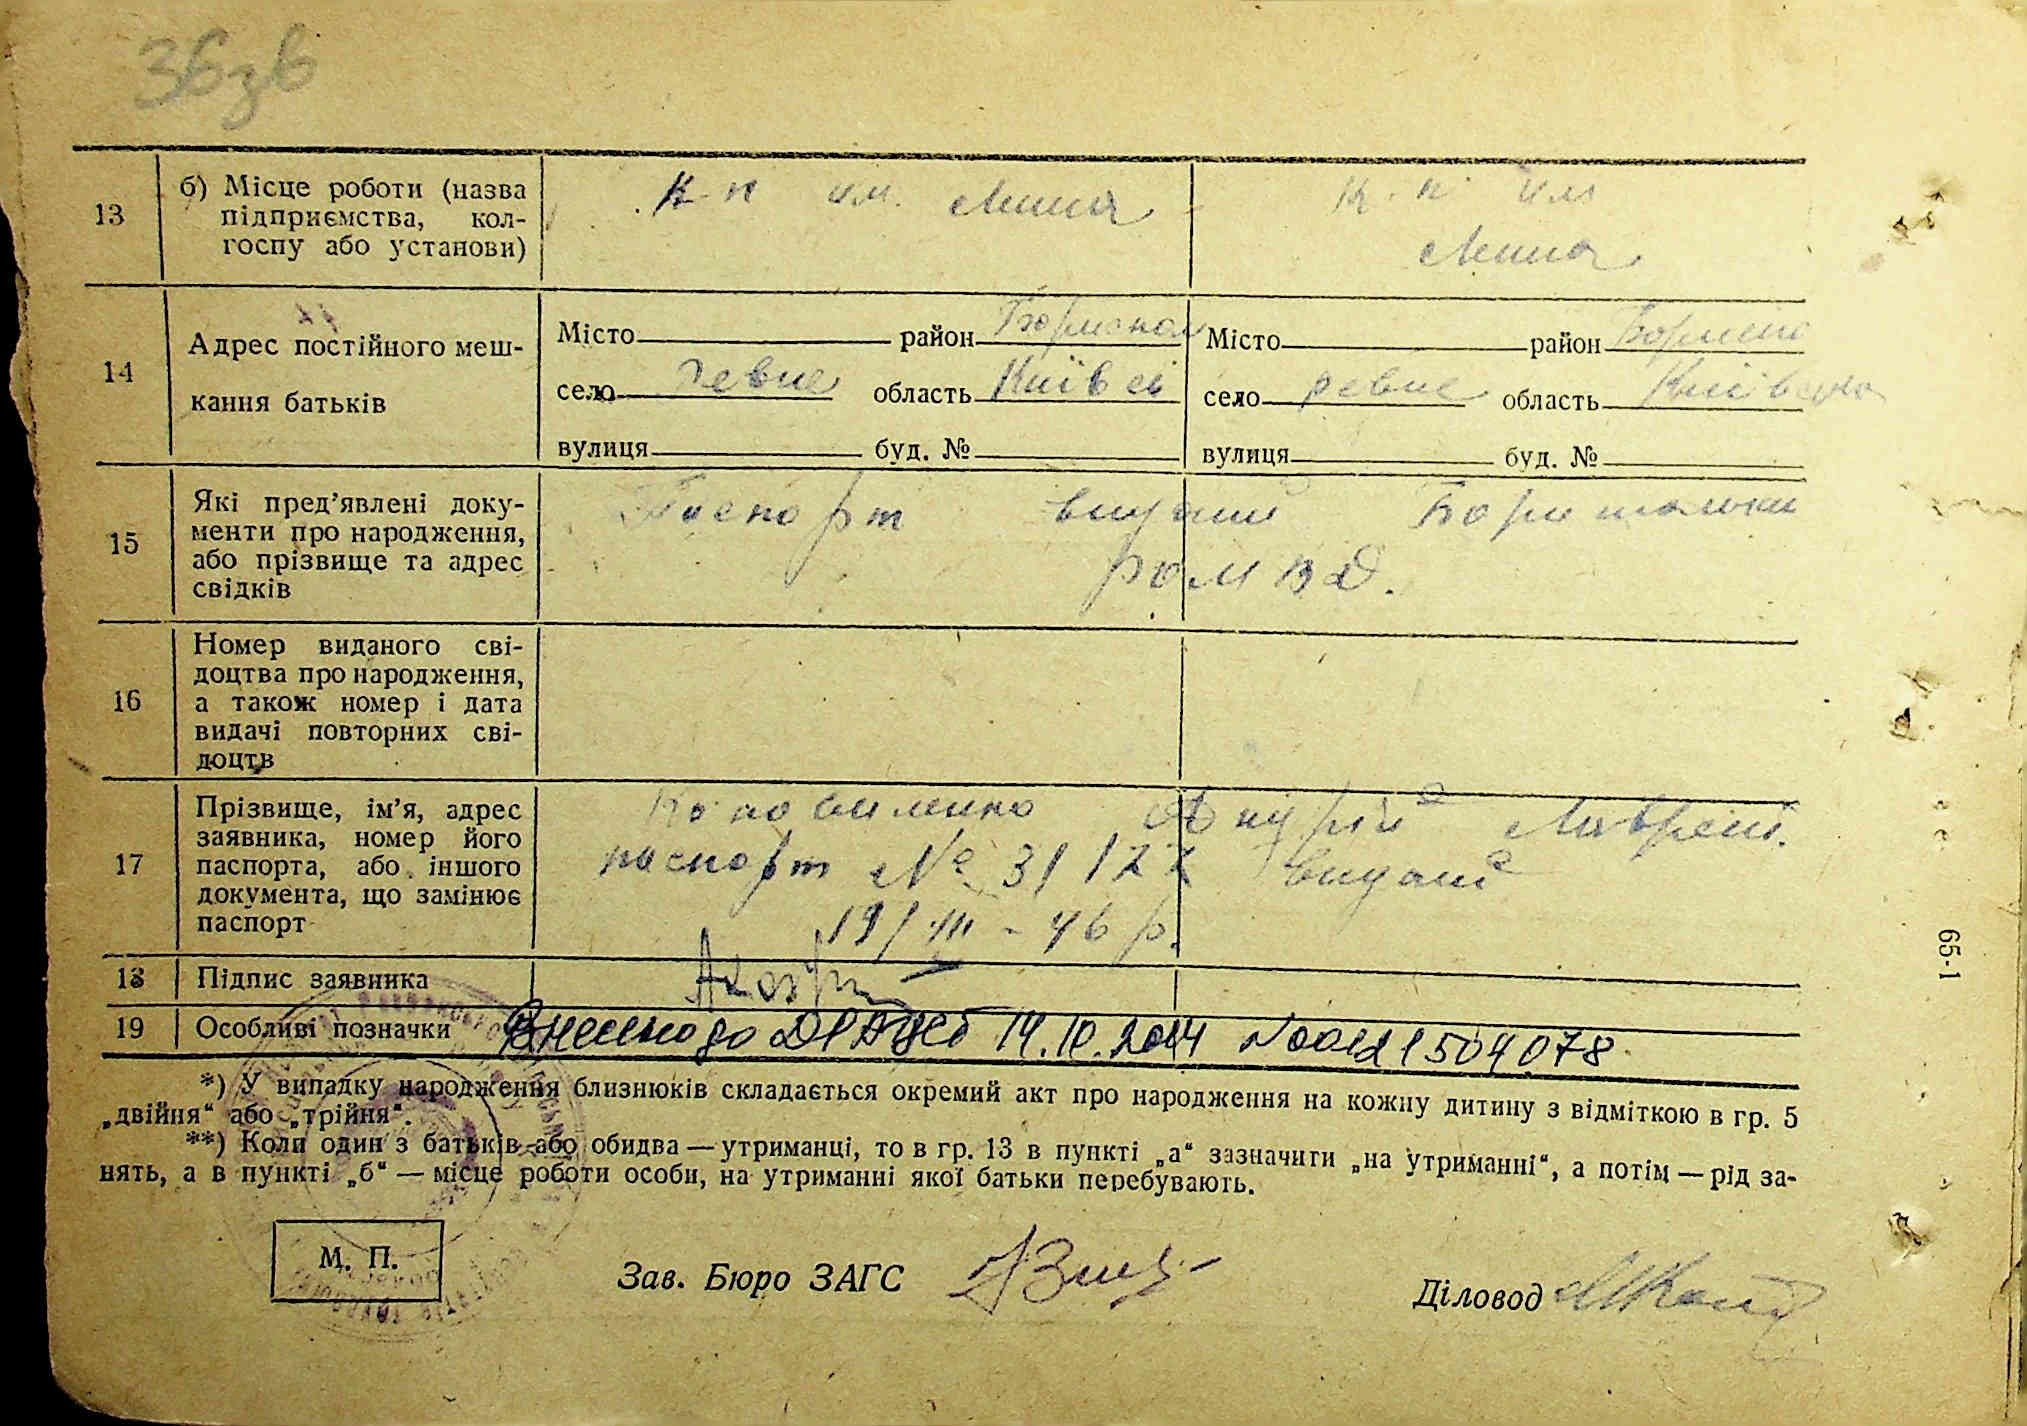 36зв
13
б) Місце роботи (назва
підприємства, кол-
госпу або установи)
К-п им.
К-п им
14
Адрес постійного меш-
кання батьків
Місто район
село Ревне область Київсь
вулиця буд. №
Місто район
село Ревне область
вулиця буд. №
15
Які пред’явлені доку-
менти про народження,
або прізвище та адрес
свідків
Паспорт виданий
РО МВД.
16
Номер виданого сві-
доцтва про народження,
а також номер і дата
видачі повторних сві-
доцтв
17
Прізвище, ім’я, адрес
заявника, номер його
паспорта, або іншого
документа, що замінює
паспорт
паспорт № виданий
19/III - 46 р.
18 Підпис заявника
19 Особливі позначки Внесено до ДРАЦСГ 14.10.2014 №00121504078
*) У випадку народження близнюків складається окремий акт про народження на кожну дитину з відміткою в гр. 5
„двійня“ або „трійня“.
**) Коли один з батьків або обидва — утриманці, то в гр. 13 в пункті „а“ зазначити „на утриманні“, а потім — рід за-
нять, а в пункті „б“ — місце роботи особи, на утриманні якої батьки перебувають.
М. П.
Зав. Бюро ЗАГС
Діловод
65-1